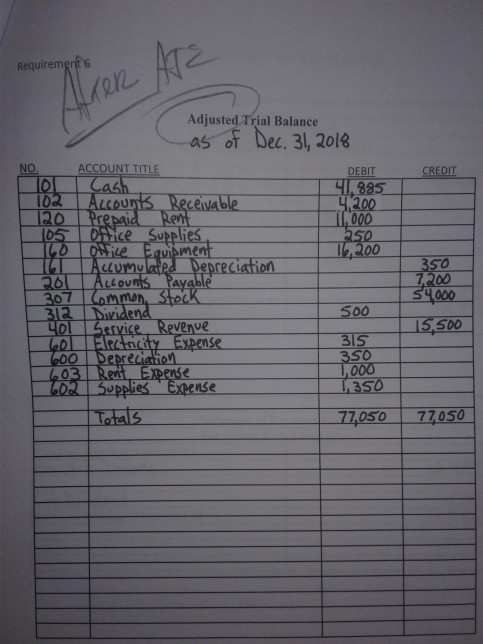 Requirement 6
After AJE
Adjusted Trial Balance
as of Dec. 31, 2018
NO. ACCOUNT TITLE DEBIT CREDIT
101 Cash 41,885
102 Accounts Receivable 4,200
120 Prepaid Rent 11,000
105 Office Supplies 250
160 Office Equipment 16,200
161 Accumulated Depreciation 350
201 Accounts Payable 7,200
307 Common Stock 54,000
312 Dividend 500
401 Service Revenue 15,500
601 Electricity Expense 315
600 Depreciation 350
603 Rent Expense 1,000
602 Supplies Expense 1,350
Totals 77,050 77,050